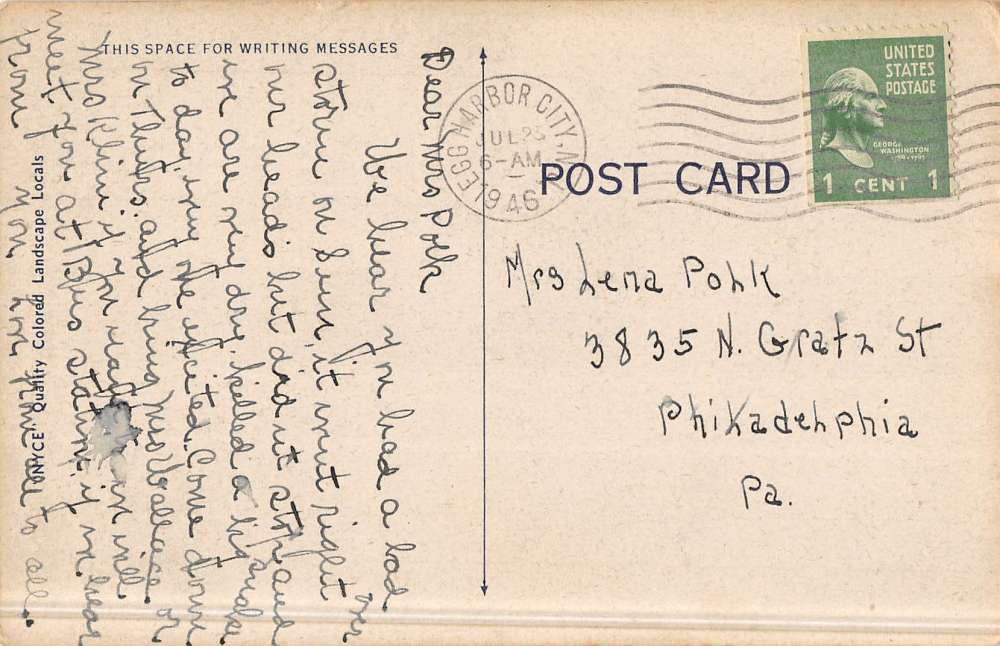 THIS SPACE FOR WRITING MESSAGES
Dear Mrs Polk
We hear you had a bad
storm on Sun, it went right over
our heads but didn't stop and
we are very dry. killed a big snake
to day, my we excited. Come down
on Thurs. and bring Mrs Wallace or
Mrs Klin if you wait in will
meet you at Bus station, if in hear
from you. love to all.
"NYCE" Quality Colored Landscape Locals
EGG HARBOR CITY, N
JUL 23
6-AM
1946
POST CARD
UNITED
STATES
POSTAGE
GEORGE
WASHINGTON
1 CENT 1
Mrs Lena Polk
3835 N. Gratz St
Philadelphia
Pa.